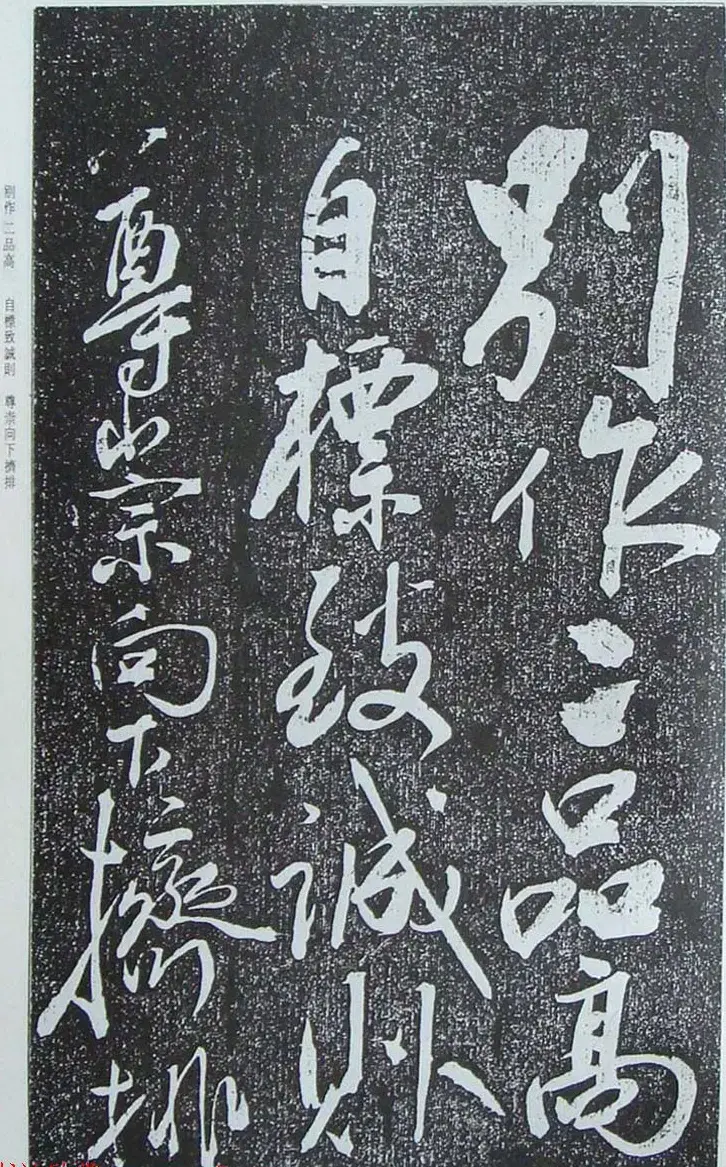 別作二品高
自標致誠則
尊崇向下擠排
別作二品高　自標致誠則　尊崇向下擠排